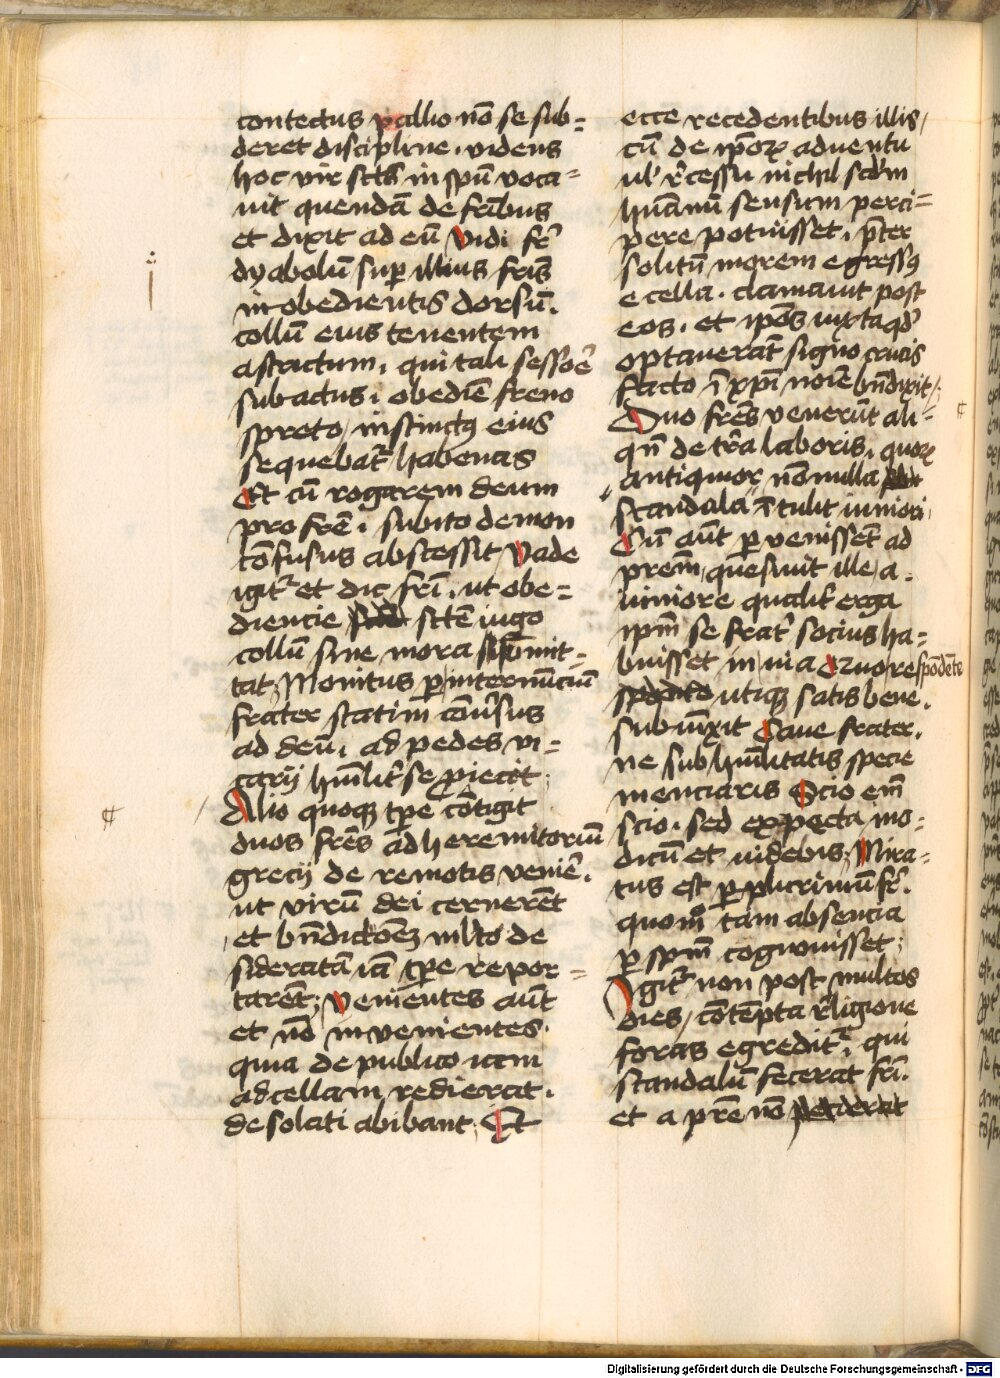 contectus pallio nō se sub=
deret discipline. videns
hoc vir sctūs in spū voca=
uit quendā de frībus
et dixit ad eū Vidi fr̄
dyabolū sup illius fris
inobedientis dorsū.
collū eius tenentem
astrictum, qui tali sessoe̅
subactus, obedie̅ freno
spreto, instinctꝯ eius
sequebat᷑ habenas
Et cū rogarem deum
pro fre̅, subito demon
cōfusus abscessit Vade
igit᷑ et dic fri̅, ut obe=
diencie scte̅ iugo
collū sine mora submit=
tat, Monitus p̱ internūciū
frater statim cōu̅sus
ad deū, ad pedes vi=
carij hu̅ilit̉ se ꝓiecit;
Alio quoqꝫ tp̄e cōtigit
duos fre̅s ad heremitoriū
grecij de remotis venie̅.
ut virū dei cernere̅t
et bn̅dictōeꝫ mlto de
sideratā iā tp̄e repor=
tare̅t; Venientes au̅t
et nō invenientes.
quia de publico iam
ad cellam redierat.
desolati abibant; Et
ecce recedentibus illis/
cū de ip̄oꝝ aduentu
ul' r̄cessu nichil scd̄m
hu̅anū sensum perci=
pere potuisset, p̄ter
solitū morem egressꝯ
e cella. clamauit post
eos, et ip̄os iuxta qd̄
optauerāt signo crucis
facto ī xp̄i noīe bn̅dixit/.
Duo fre̅s venerūt ali=
qn̄ de tr̄a laboris, quoꝝ
antiquior nōnulla
scandala ītulit iuniori.
Cū au̅t peruenisset ad
prem̄, quesiuit ille a
iuniore qualit̉ erga
ip̄m se frat̉ socius ha=
buisset in uia Quo respōde̅te
utiqꝫ satis bene.
subiūxit Caue frater.
ne sub hu̅ilitatis specie
menciaris Scio em̄
scio. sed expecta mo=
dicū et uidebis, Mira=
tus est p̱ plurimū fr̄.
quomō tam absencia
p̱ spm̄ cognouisset;
Igit᷑ non post multos
dies, cōte̅pta r̄ligione
foras egredit᷑, qui
scandalū fecerat fri̅.
et a pre̅ nō